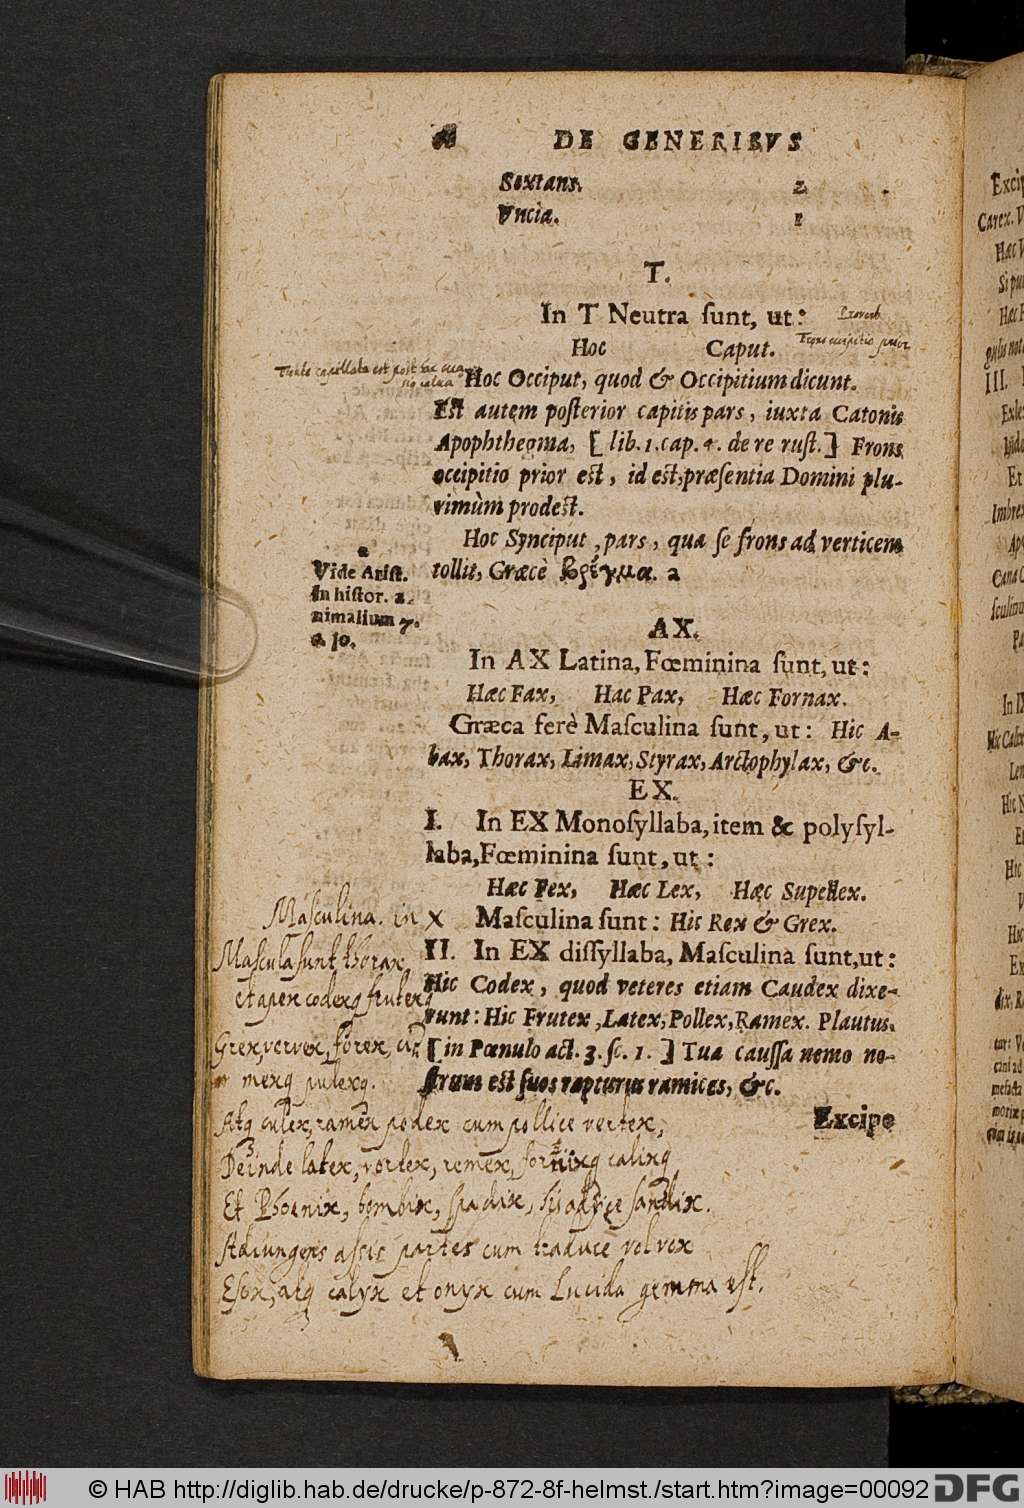 DE GENERIBVS
Sextans. 2
Vncia. 1
T.
In T Neutra ſunt, ut:
Proverb
Hoc Caput.
Frons occipitio prior
est post hæc
calua
Hoc Occiput, quod & Occipitium dicunt.
Eſt autem poſterior capitis pars, iuxta Catonis
Apophthegma, [ lib. 1. cap. 4. de re ruſt. ] Frons
occipitio prior eſt, id eſt, præſentia Domini plu-
rimùm prodeſt.
Hoc Synciput, pars, qua ſe frons ad verticem
tollit, Græcè βρέγμα. a
a
Vide Ariſt.
In hiſtor. a-
nimalium 7.
AX.
In AX Latina, Fœminina ſunt, ut:
Hæc Fax, Hac Pax, Hæc Fornax.
Græca ferè Maſculina ſunt, ut: Hic A-
bax, Thorax, Limax, Styrax, Arctophylax, &c.
EX.
I. In EX Monoſyllaba, item & polyſyl-
laba, Fœminina ſunt, ut:
Hæc Fex, Hæc Lex, Hæc Supellex.
Maſculina ſunt: Hic Rex & Grex.
II. In EX diſſyllaba, Maſculina ſunt, ut:
Hic Codex, quod veteres etiam Caudex dixe-
runt: Hic Frutex, Latex, Pollex, Ramex. Plautus.
[ in Pœnulo act. 3. ſc. 1. ] Tua cauſſa nemo no-
ſtrum eſt ſuos rupturus ramices, &c.
Excipe
Maſculina. in X
Maſcula ſunt thorax
et apex codexq frutexq
Grex, vervex, forex,
mexq pulexq.
Atq culex, ramex podex cum pollice vertex,
Deinde latex, vortex, remex, fornixq calixq
Et Phoenix, bombix, ſpadix, ſandix.
Adiungens aſsis partes cum traduce volvox
Eſox, atq calyx et onyx cum Lucida gemma eſt.
© HAB http://diglib.hab.de/drucke/p-872-8f-helmst./start.htm?image=00092 DFG